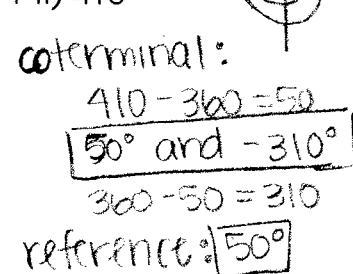 coterminal:
410-360=50
50° and -310°
360-50=310
reference: 50°